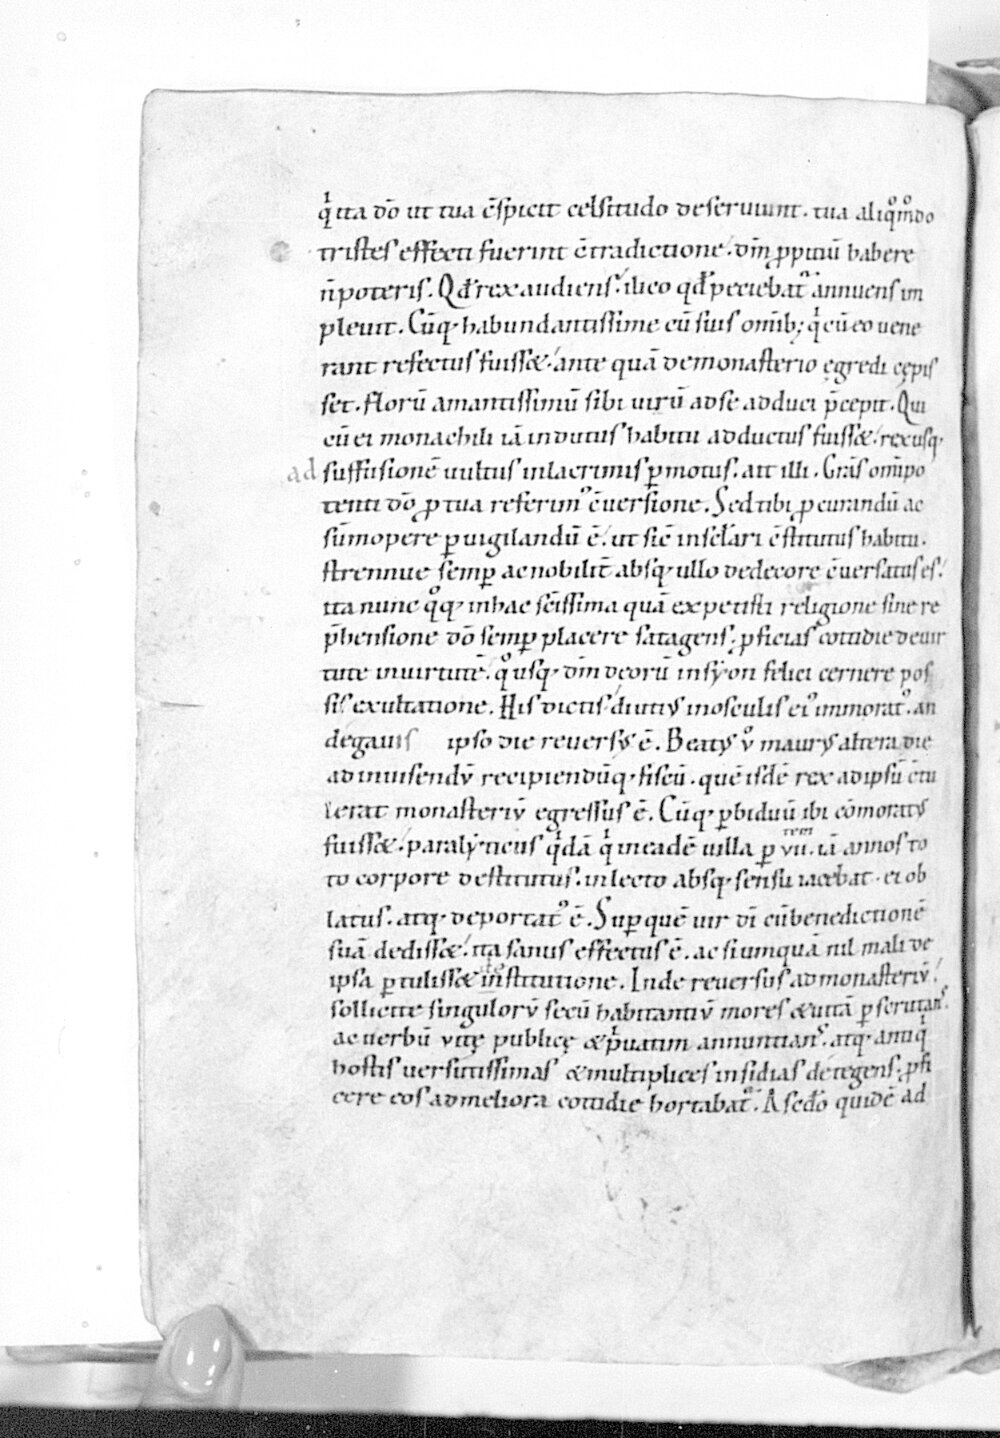 qͥ ita dō ut tua c̄spicit celsitudo deseruiunt. tua aliqͦmͦdo
tristes effecti fuerint c̄tradictione. dm̄ ꝓpitiū habere
n̄ poteris. Qđ rex audiens. ilico qđ peciebat᷑ annuens im
pleuit. Cūq; habundantissime cū suis omīb; qͥ cū eo uene
rant refectus fuiss&. ante quā de monasterio ęgredi cępis
set. florū amantissimū sibi uirū ad se adduci p̄cepit. Qui
cū ei monachili iā indutus habitu adductus fuiss&. rex usq;
ad suffusionē uultus in lacrimis ꝑmotus. ait illi. Grās omīpo
tenti dō ꝓ tua referim᷒ c̄uersione. Sed tibi ꝓcurandū ac
sūmopere ꝑuigilandū ē. ut sic̄ in sclari c̄stitutus habitu.
strennue semꝑ ac nobilit̄ absq; ullo dedecore c̄uersatus es.
ita nunc qͦq; in hac sc̄issima quā expetisti religione sine re
p̄hensione dō semꝑ placere satagens. ꝓficias cotidie de uir
tute in uirtutē. qͦusq; dm̄ deorū in syon felici cernere pos
sis exultatione. His dictis diuti᷒ in osculis ei᷒ immorat᷒. an
degauis ipso die reuers᷒ ē. Beat᷒ v̊ maur᷒ altera die
ad inuisendū recipiendūq; fiscū. quē isdē rex ad ipsū c̄tu
lerat monasteriū egressus ē. Cūq; ꝑ biduū ibi cōmorat᷒
fuiss&. paralyticus qͥdā qͥ in eadē uilla ꝑ vii.tem iā annos to
to corpore destitutus. in lecto absq; sensu iacebat. ei ob
latus. atq; deportat᷒ ē. Sup quē uir dī cū benedictionē
suā dediss&. ita sanus effectus ē. ac si umquā nil mali de
ipsa ꝑtuliss& institutione. Inde reuersus ad monasteriū.
sollicite singulorū secū habitantiū mores & uitā ꝑscrutans.
ac uerbū vitę publicę & pͥuatim annuntians. atq; antiqͥ
hostis uersutissimas & multiplices insidias detegens. ꝓfi
cere eos ad meliora cotidie hortabat᷑. A secdo quidē ad